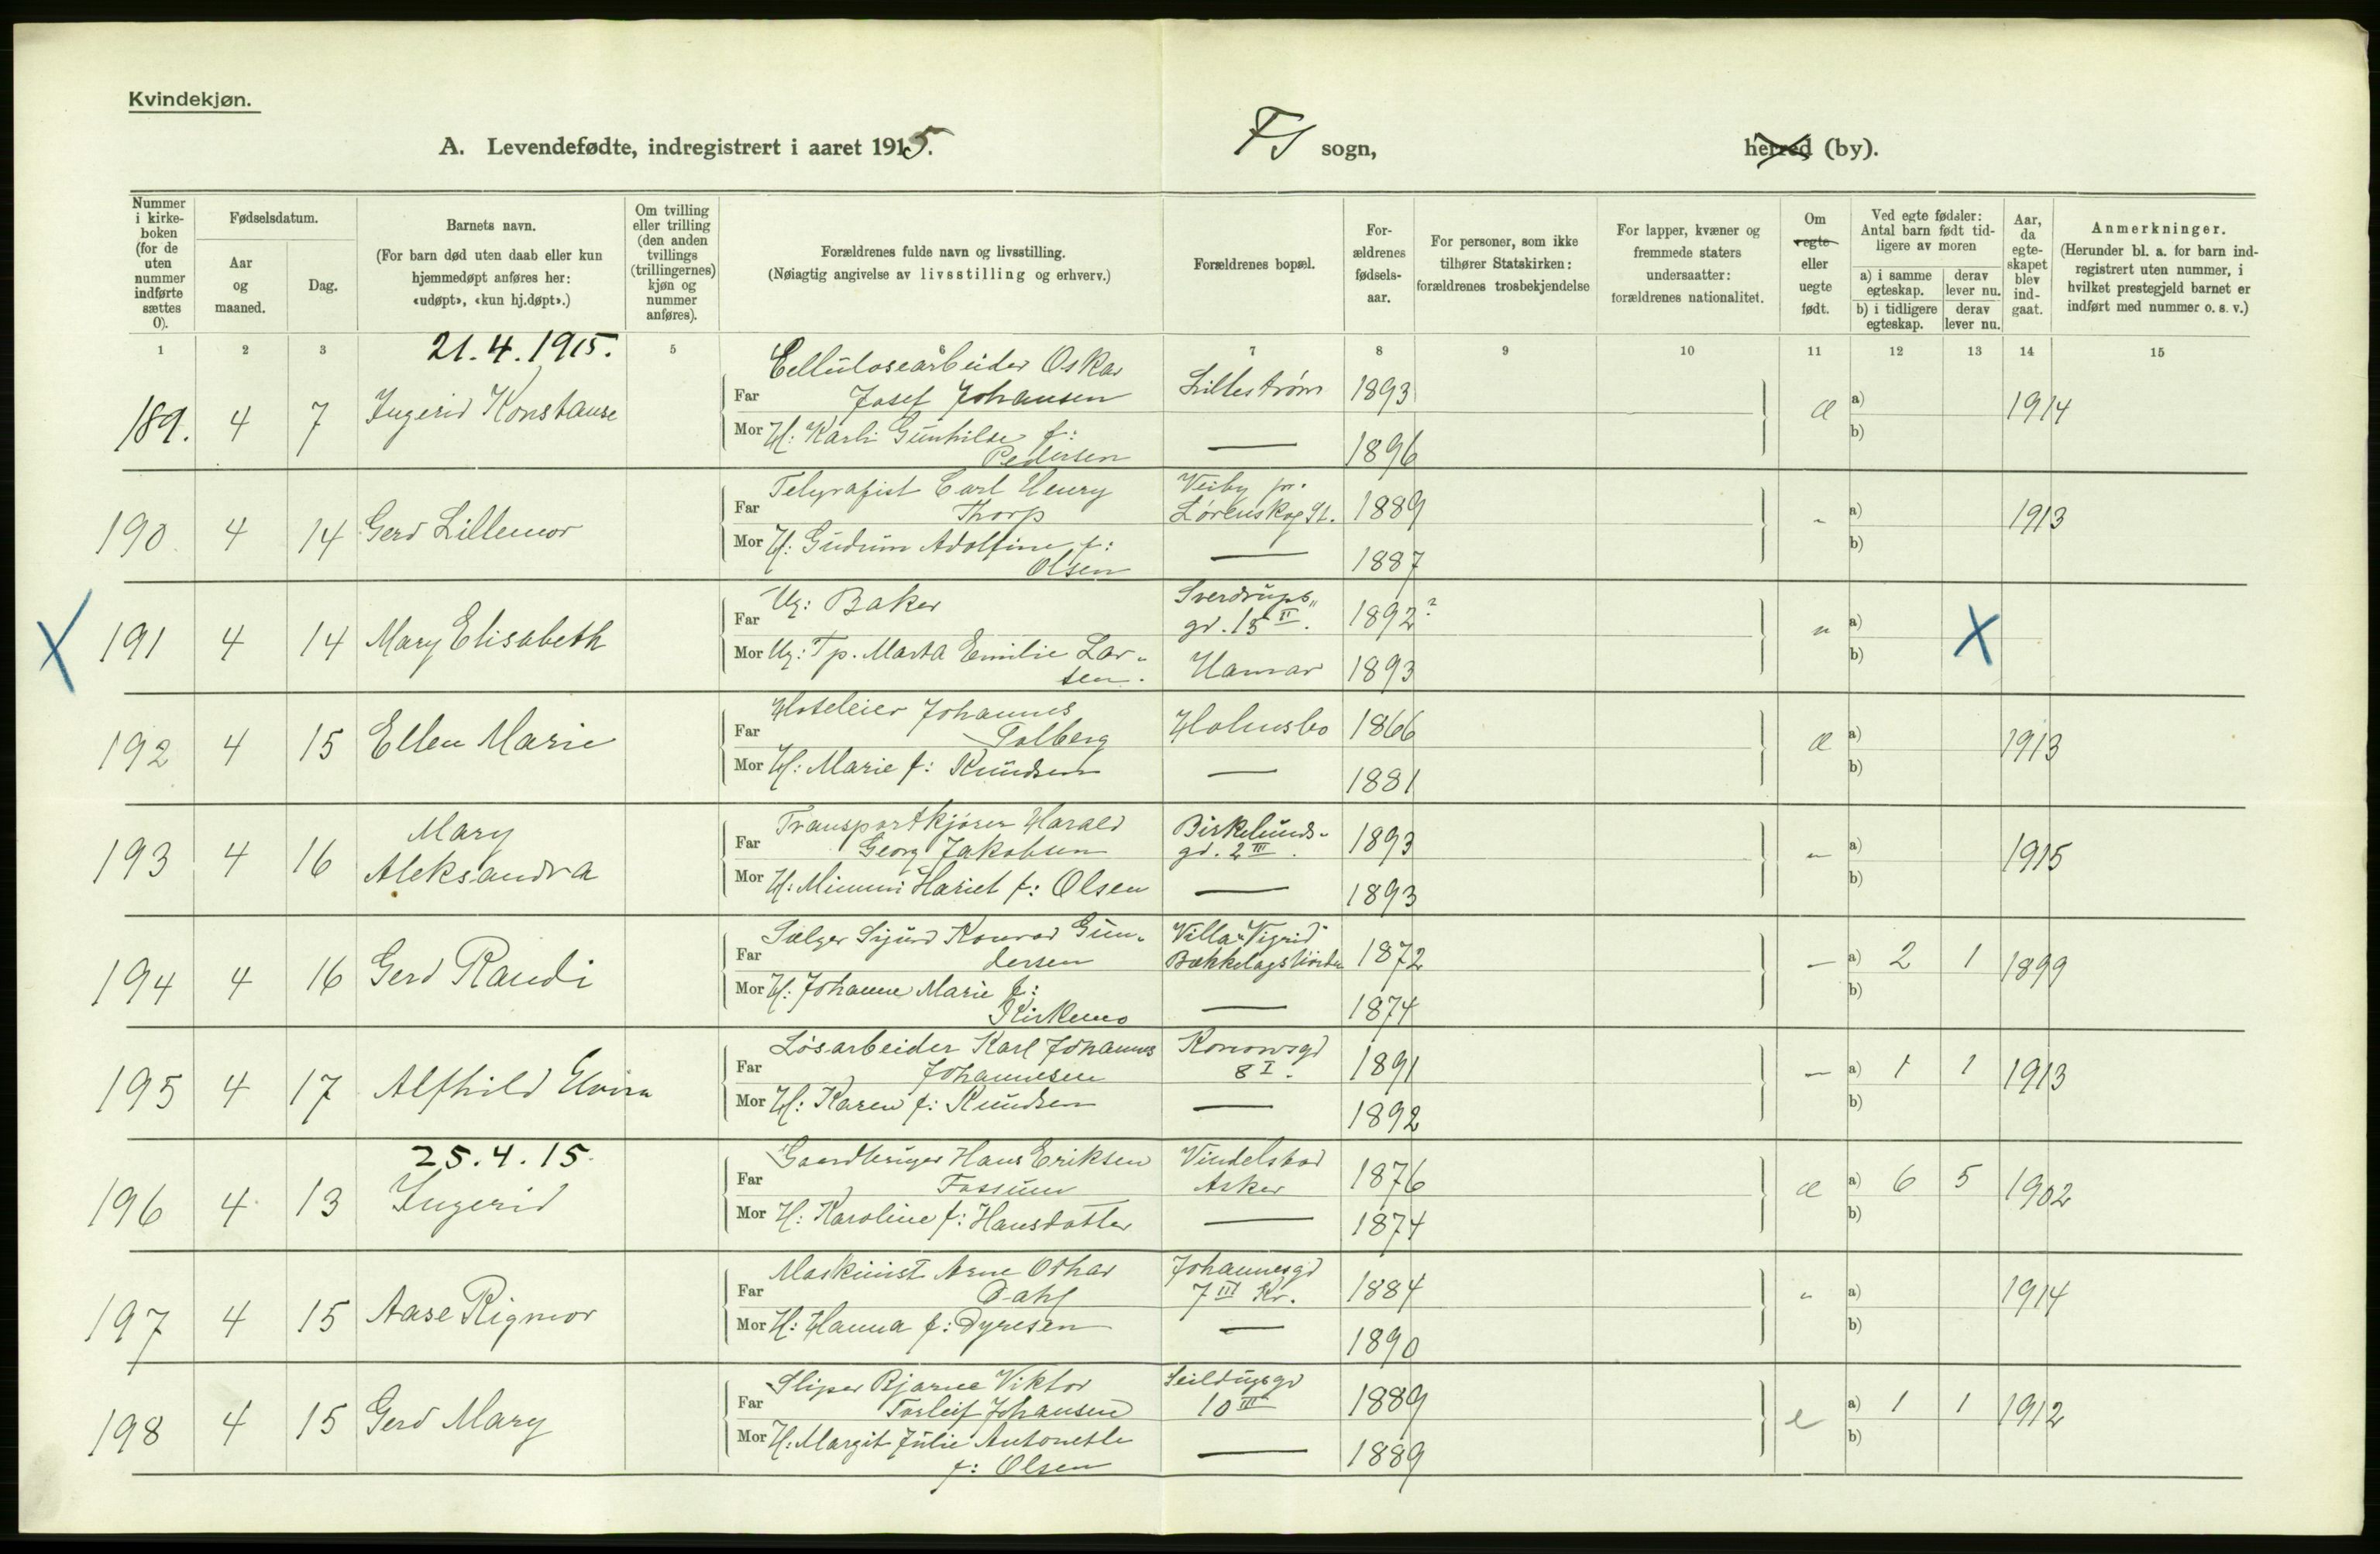 Kvindekjøn.
A. Levendefødte, indregistrert i aaret 1915.
FS sogn,
herred (by).
Nummer i kirke- boken (for de uten nummer indførte sættes 0).
Fødselsdatum.
Aar og maaned.
Dag.
Barnets navn.
(For barn død uten daab eller kun hjemmedøpt anføres her: «udøpt», «kun hj.døpt».)
Om tvilling eller trilling (den anden tvillings (trillingernes) kjøn og nummer anføres).
Forældrenes fulde navn og livsstilling.
(Nøiagtig angivelse av livsstilling og erhverv.)
Forældrenes bopæl.
For- ældrenes fødsels- aar.
For personer, som ikke tilhører Statskirken: forældrenes trosbekjendelse
For lapper, kvæner og fremmede staters undersaatter: forældrenes nationalitet.
Om egte eller uegte født.
Ved egte fødsler: Antal barn født tid- ligere av moren
a) i samme egteskap.
derav lever nu.
b) i tidligere egteskap.
derav lever nu.
Aar, da egte- skapet blev ind- gaat.
Anmerkninger.
(Herunder bl. a. for barn ind- registrert uten nummer, i hvilket prestegjeld barnet er indført med nummer o. s. v.)
1 2 3 5 6 7 8 9 10 11 12 13 14 15
21.4.1915.
Cellulosearbeider Oskar
189. 4 7 Ingerid Konstanse Far Josef Johansen Lillestrøm 1893 æ a) 1914
Mor H: Karli Gunhilde f: — 1896 b)
Pedersen
Telegrafist Carl Henry Veiby pr.
190 4 14 Gerd Lillemor Far Thorp Lørenskog St. 1889 " a) 1913
Mor H: Gudrun Adolfine f: — 1887 b)
Olsen
X 191 4 14 Mary Elisabeth Far Ug: Baker Sverdrups" 1892? u a) X
gd. 15 II.
Mor Ug: Tp. Marta Emilie Lar- Hamar 1893 b)
sen.
Hoteleier Johannes
192 4 15 Ellen Marie Far Tolberg Holmsbo 1866 æ a) 1913
Mor H: Marie f: Knudsen — 1881 b)
Mary Transportkjører Harald Birkelunds-
193 4 16 Aleksandra Far Georg Jakobsen gd. 2 III. 1893 " a) 1915
Mor H: Mimmi Hariet f: Olsen — 1893 b)
Sælger Sigurd Konrad Gun- Villa "Vigrid"
194 4 16 Gerd Randi Far dersen 1872 — a) 2 1 1899
Mor H: Johanne Marie f: — 1874 b)
Kirkemo
Løsarbeider Karl Johannes Konowsgd
195 4 17 Alfhild Elvira Far Johannesen 8 I. 1891 — a) 1 1 1913
Mor H: Karen f: Knudsen — 1892 b)
25.4.15.
Gaardbruger Hans Eriksen
196 4 13 Ingerid Far Fossum Asker 1876 æ a) 6 5 1902
Mor H: Karoline f: Hansdatter — 1874 b)
Maskinist Arne Othar Johannesgd
197 4 15 Aase Rigmor Far Dahl 7 III Kr. 1884 " a) 1914
Mor H: Hanna f: Dyresen — 1890 b)
Sliper Bjarne Viktor Seildugsgd
198 4 15 Gerd Mary Far Torleif Johansen 10 III 1889 e a) 1 1 1912
Mor H: Margit Julie Antonette — 1889 b)
f: Olsen